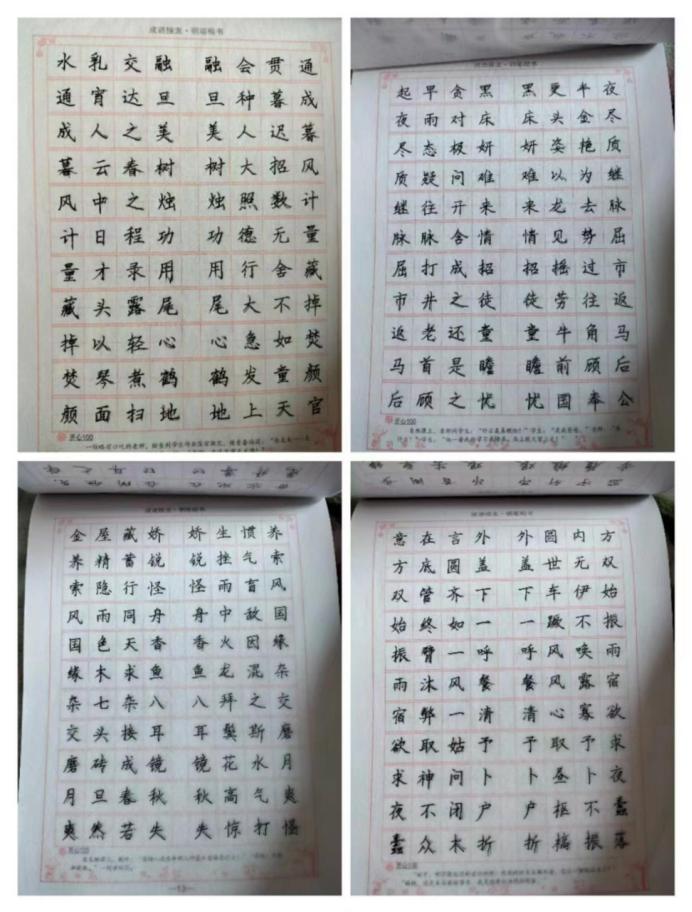 成语接龙·钢笔楷书
水乳交融 融会贯通
通宵达旦 旦种暮成
成人之美 美人迟暮
暮云春树 树大招风
风中之烛 烛照数计
计日程功 功德无量
量才录用 用行舍藏
藏头露尾 尾大不掉
掉以轻心 心急如焚
焚琴煮鹤 鹤发童颜
颜面扫地 地上天官
匠心100
起早贪黑 黑更半夜
夜雨对床 床头金尽
尽态极妍 妍姿艳质
质疑问难 难以为继
继往开来 来龙去脉
脉脉含情 情见势屈
屈打成招 招摇过市
市井之徒 徒劳往返
返老还童 童牛角马
马首是瞻 瞻前顾后
后顾之忧 忧国奉公
匠心100
金屋藏娇 娇生惯养
养精蓄锐 锐挫气索
索隐行怪 怪雨盲风
风雨同舟 舟中敌国
国色天香 香火因缘
缘木求鱼 鱼龙混杂
杂七杂八 八拜之交
交头接耳 耳鬓斯磨
磨砖成镜 镜花水月
月旦春秋 秋高气爽
爽然若失 失惊打怪
匠心100
—13—
意在言外 外圆内方
方底圆盖 盖世无双
双管齐下 下车伊始
始终如一 一蹶不振
振臂一呼 呼风唤雨
雨沐风餐 餐风露宿
宿弊一清 清心寡欲
欲取姑予 予取予求
求神问卜 卜昼卜夜
夜不闭户 户枢不蠹
蠹众木折 折槁振落
匠心100